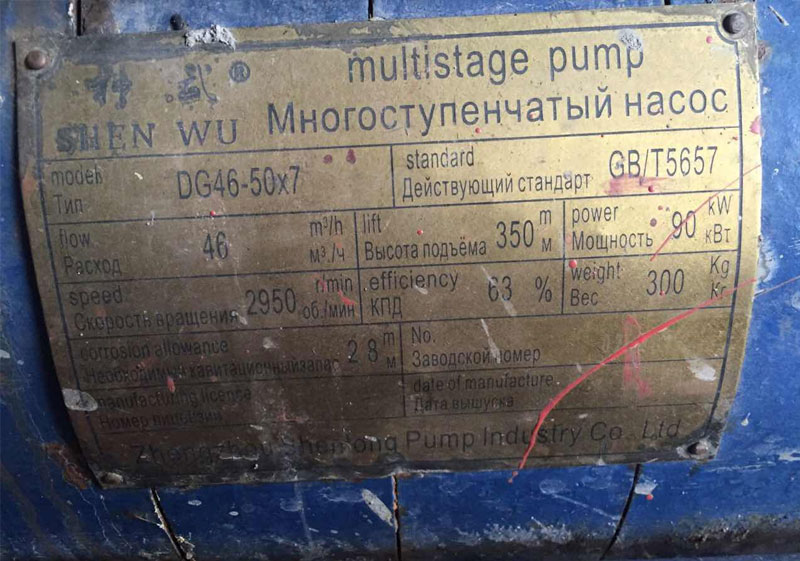 神武® multistage pump
SHEN WU Многоступенчатый насос
model: DG46-50x7 standard GB/T5657
Тип Действующий стандарт
flow 46 m³/h lift 350 m power 90 kW
Расход м³/ч Высота подъёма м Мощность кВт
speed 2950 r/min efficiency 63 % weight 300 Kg
Скорость вращения об./мин КПД Вес Кг
corrosion allowance 2 8 m No.
Необходимый кавитационный запас м Заводской номер
manufacturing license date of manufacture
Номер лицензии Дата выпуска
Zhengzhou Shenlong Pump Industry Co. Ltd